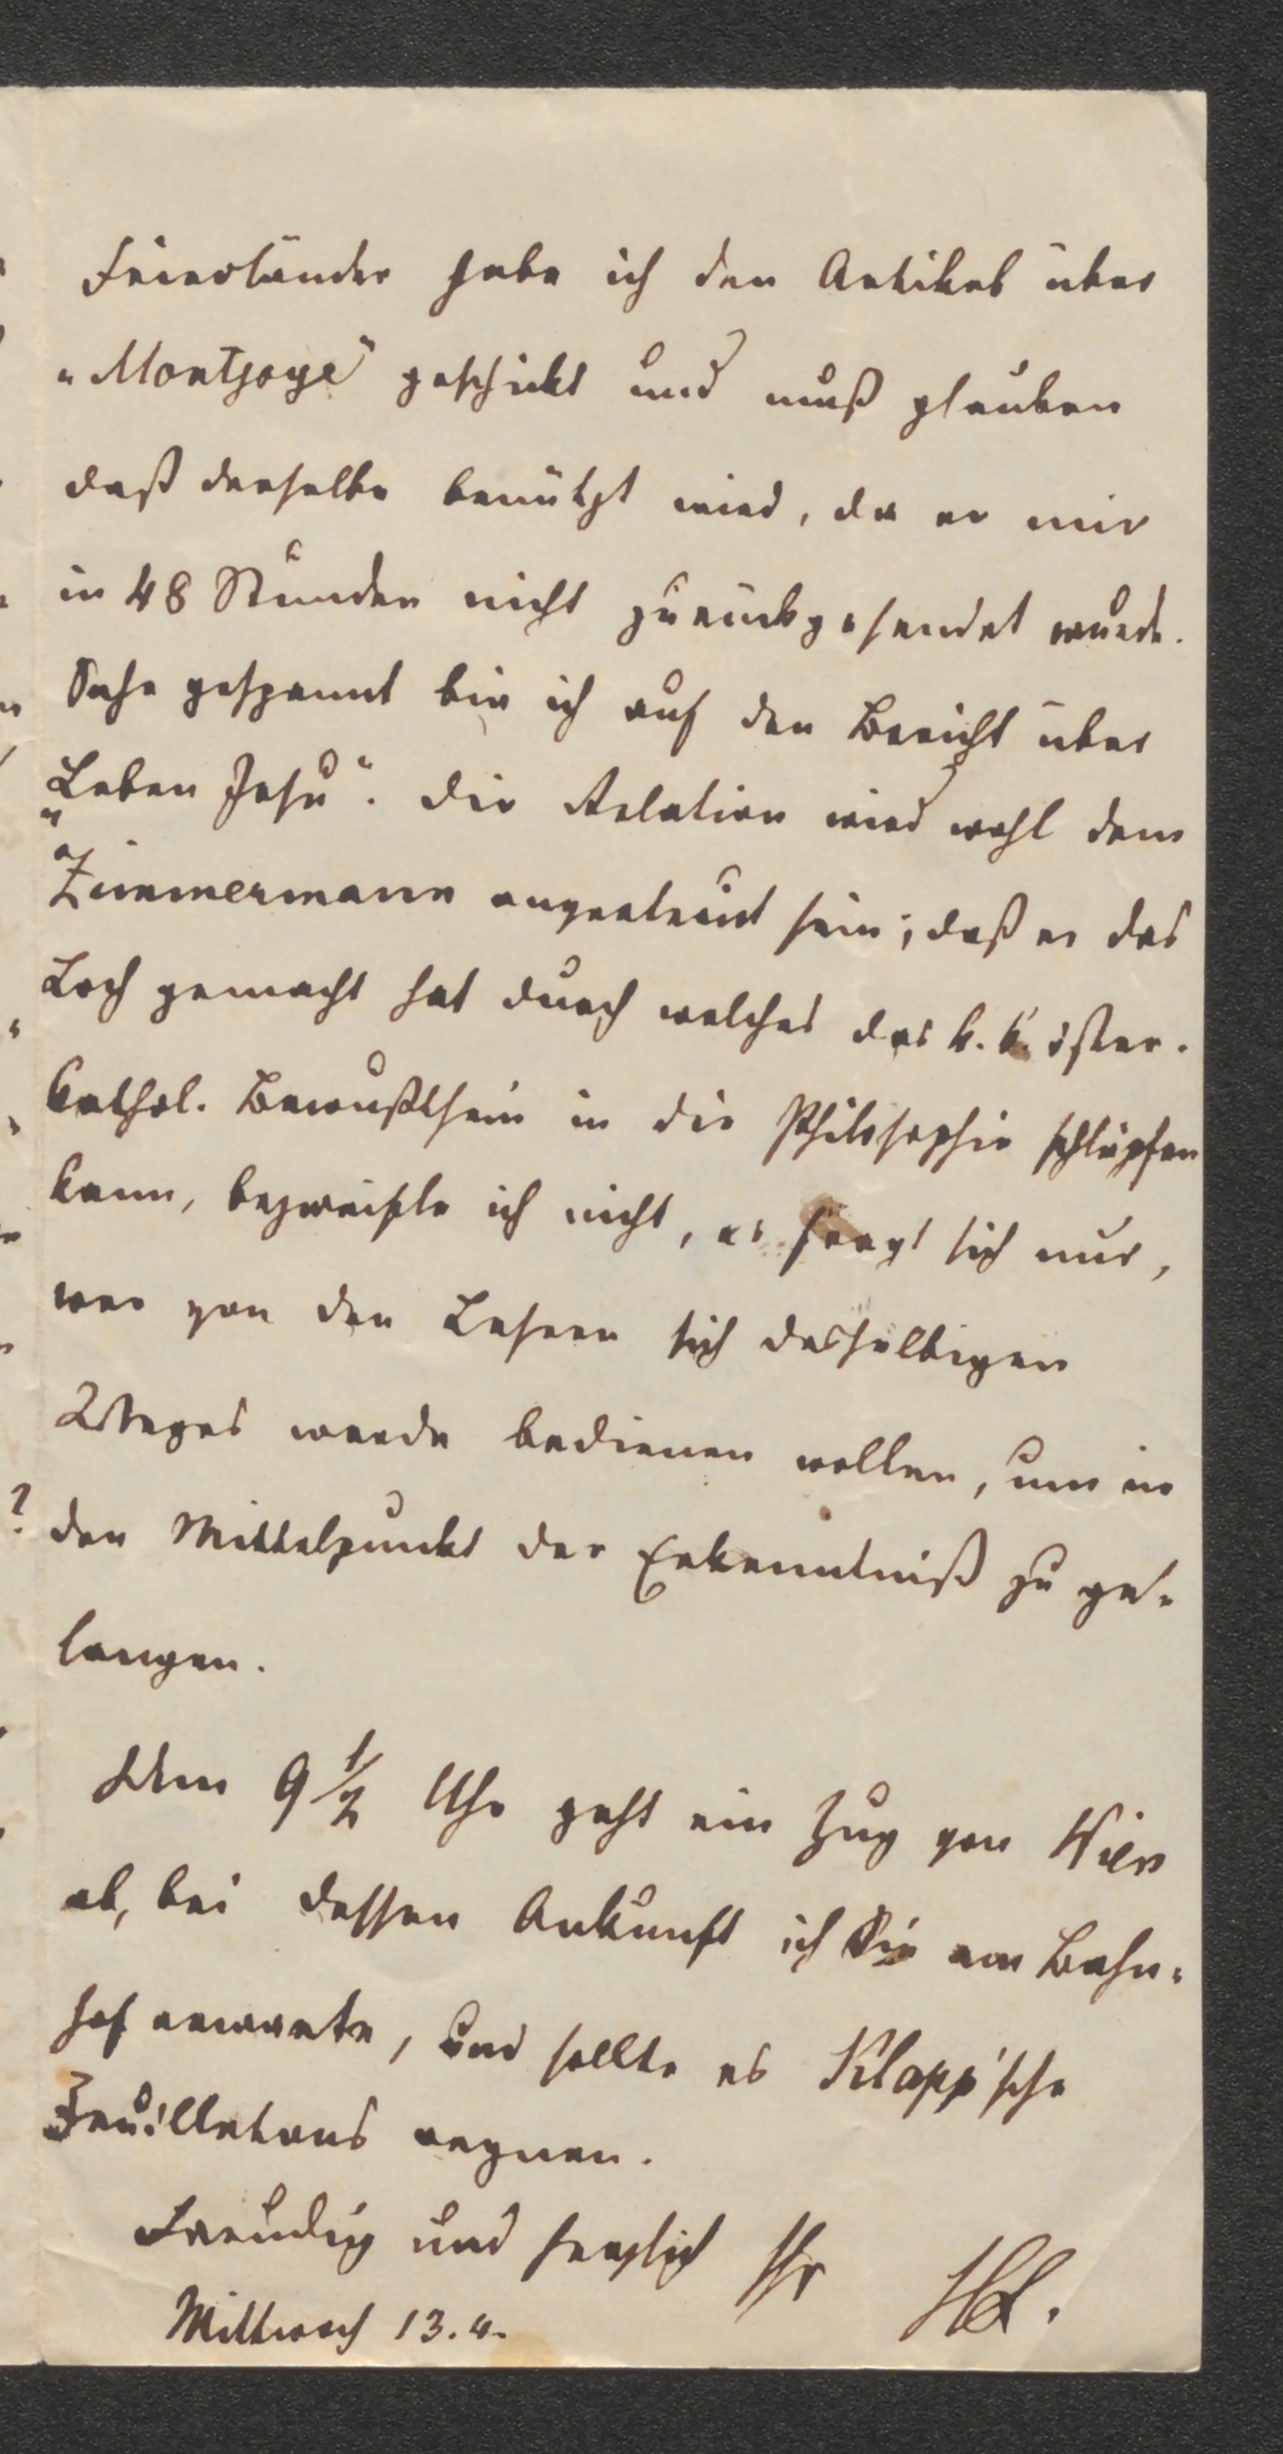 Friedländer habe ich den Artikel über
„Montjoye“ geschickt und muß glauben
daß derselbe benützt wird, da er mir
in 48 Stunden nicht zurückgesendet wurde.
Sehr gespannt bin ich auf den Bericht über
„Leben Jesu“. Die Relation wird wohl dem
Zimmermann angetraut sein; daß er das
Loch gemacht hat durch welches das k. k. öster.
kathol. Bewußtsein in die Philosophie schlüpfen
kann, bezweifle ich nicht, es fragt sich nur,
wer von den Lesern sich desselbigen
Weges werde bedienen wollen, um in
den Mittelpunkt der Erkenntniß zu ge-
langen.
Um 9 1/2 Uhr geht ein Zug von Wien
ab, bei dessen Ankunft ich Sie am Bahn-
hof erwarte, und sollte es Klapp'sche
Feuilletons regnen.
Freudig und herzlich Ihr
Mittwoch 13.4.